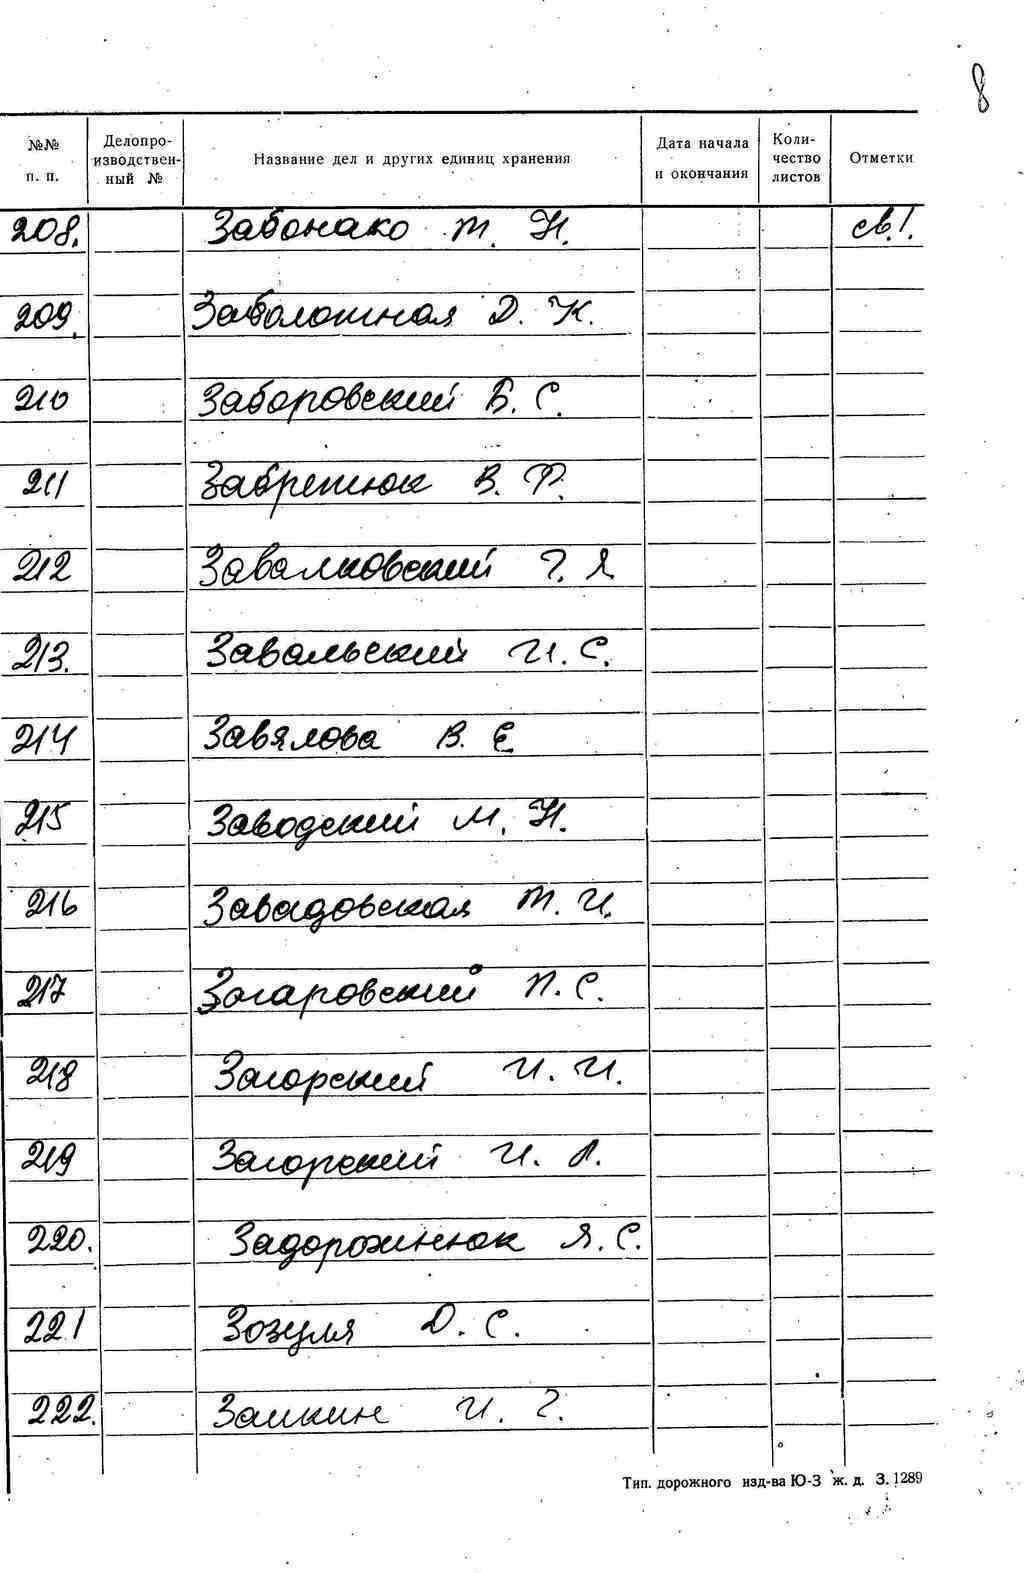 8
№№ п. п. Делопроизводствен-ный № Название дел и других единиц хранения Дата начала и окончания Коли-чество листов Отметки
208. Забонако Т. Н. св. 1.
209. Заболотная Д. К.
210 Заборовский Б. С.
211 Забретюк В. Ф.
212 Завалковский Г. Я
213. Завальский И. С.
214 Завялова В. Е
215 Заводский М. Н.
216 Завадовская Т. И.
217 Загаровский П. С.
218 Загорский И. И.
219 Загорский И. А.
220. Задорожнюк Я. С.
221 Зозуля D. С.
222. Заикин И. Г.
Тип. дорожного изд-ва Ю-З ж. д. З. 1289